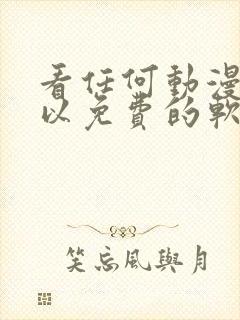 看任何動漫
以免費的軟
笑忘風與月